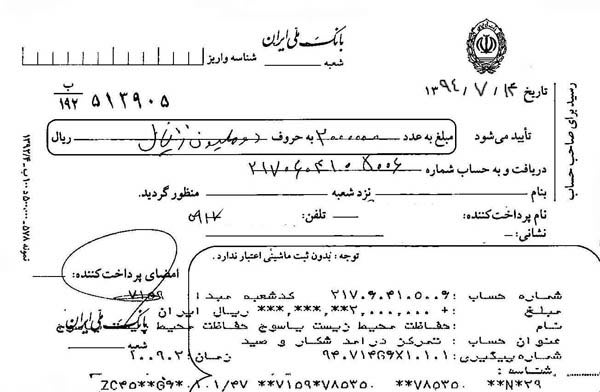 بانک ملی ایران
شعبه شناسه واریز
تاریخ ۱۳۹۴/۷/۱۴
ب/۱۹۲ ۵۱۳۹۰۵
رسید برای صاحب حساب
تأیید می‌شود مبلغ به عدد ۲۰۰۰۰۰۰ به حروف دو میلیون ریال ریال
دریافت و به حساب شماره ۲۱۷۰۶۰۴۱۰۵۰۰۶
بنام نزد شعبه منظور گردید.
نام پرداخت‌کننده: تلفن:
نشانی:
توجه: بدون ثبت ماشینی اعتبار ندارد.
امضای پرداخت‌کننده:
شماره حساب : ۲۱۷۰۶۰۴۱۰۵۰۰۶ کدشعبه مبدا: ۷۱۵۹
مبلغ : + ۲,۰۰۰,۰۰۰**,***,*** ریال ایران
نام : حفاظت محیط زیست یاسوج حفاظت محیط
بانک ملی ایران
شعبه
عنوان حساب : تمرکز درآمد شکار و صید
شماره پیگیری: ۹۴۰۷۱۴G۶X۱۰۱۰۱ زمان: ۲۰۰۹۰۲
شناسه :
**۷۱۵۹*۷۸۵۳۰ **۷۸۵۳۰ **N*۲۹